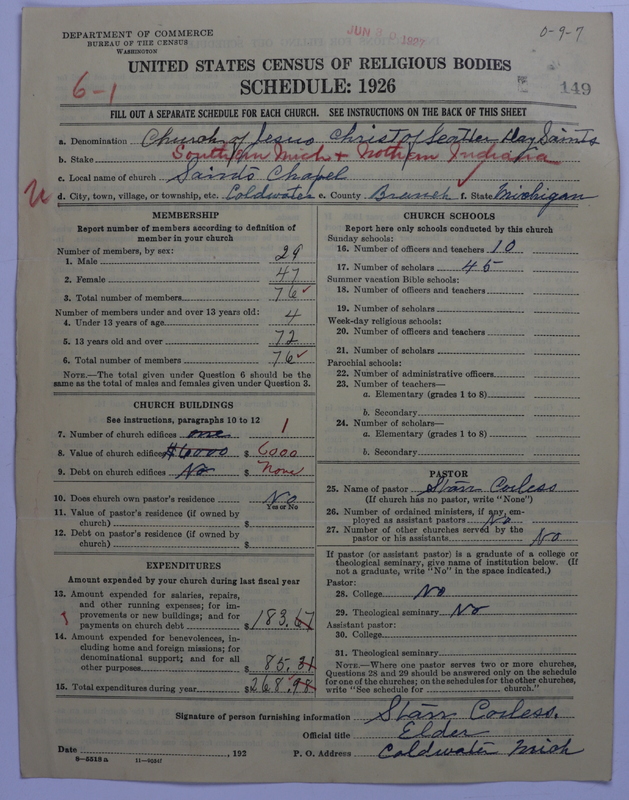 DEPARTMENT OF COMMERCE
BUREAU OF THE CENSUS
WASHINGTON
JUN 30 1927
0-9-7
UNITED STATES CENSUS OF RELIGIOUS BODIES
SCHEDULE: 1926
6-1
149
FILL OUT A SEPARATE SCHEDULE FOR EACH CHURCH. SEE INSTRUCTIONS ON THE BACK OF THIS SHEET
a. Denomination Church of Jesus Christ of Latter Day Saints
b. Stake Southern Mich + Nothern Indiana
c. Local name of church Saints Chapel
d. City, town, village, or township, etc. Coldwater e. County Branch f. State Michigan
MEMBERSHIP
Report number of members according to definition of
member in your church
Number of members, by sex:
1. Male 29
2. Female 47
3. Total number of members 76
Number of members under and over 13 years old:
4. Under 13 years of age 4
5. 13 years old and over 72
6. Total number of members 76
NOTE.—The total given under Question 6 should be the
same as the total of males and females given under Question 3.
CHURCH BUILDINGS
See instructions, paragraphs 10 to 12
7. Number of church edifices one 1
8. Value of church edifices $6000 $ 6000
9. Debt on church edifices No $ None
10. Does church own pastor's residence No
Yes or No
11. Value of pastor's residence (if owned by
church) $
12. Debt on pastor's residence (if owned by
church) $
EXPENDITURES
Amount expended by your church during last fiscal year
13. Amount expended for salaries, repairs,
and other running expenses; for im-
provements or new buildings; and for
payments on church debt $ 183.67
14. Amount expended for benevolences, in-
cluding home and foreign missions; for
denominational support; and for all
other purposes $ 85.31
15. Total expenditures during year $ 268.98
CHURCH SCHOOLS
Report here only schools conducted by this church
Sunday schools:
16. Number of officers and teachers 10
17. Number of scholars 45
Summer vacation Bible schools:
18. Number of officers and teachers
19. Number of scholars
Week-day religious schools:
20. Number of officers and teachers
21. Number of scholars
Parochial schools:
22. Number of administrative officers
23. Number of teachers—
a. Elementary (grades 1 to 8)
b. Secondary
24. Number of scholars—
a. Elementary (grades 1 to 8)
b. Secondary
PASTOR
25. Name of pastor Starr Corless
(If church has no pastor, write "None")
26. Number of ordained ministers, if any, em-
ployed as assistant pastors No
27. Number of other churches served by the
pastor or his assistants No
If pastor (or assistant pastor) is a graduate of a college or
theological seminary, give name of institution below. (If
not a graduate, write "No" in the space indicated.)
Pastor:
28. College No
29. Theological seminary No
Assistant pastor:
30. College
31. Theological seminary
NOTE.—Where one pastor serves two or more churches,
Questions 28 and 29 should be answered only on the schedule
for one of the churches; on the schedules for the other churches,
write "See schedule for church."
Signature of person furnishing information Starr Corless.
Official title Elder
Date , 192 P. O. Address Coldwater Mich
8—5518 a